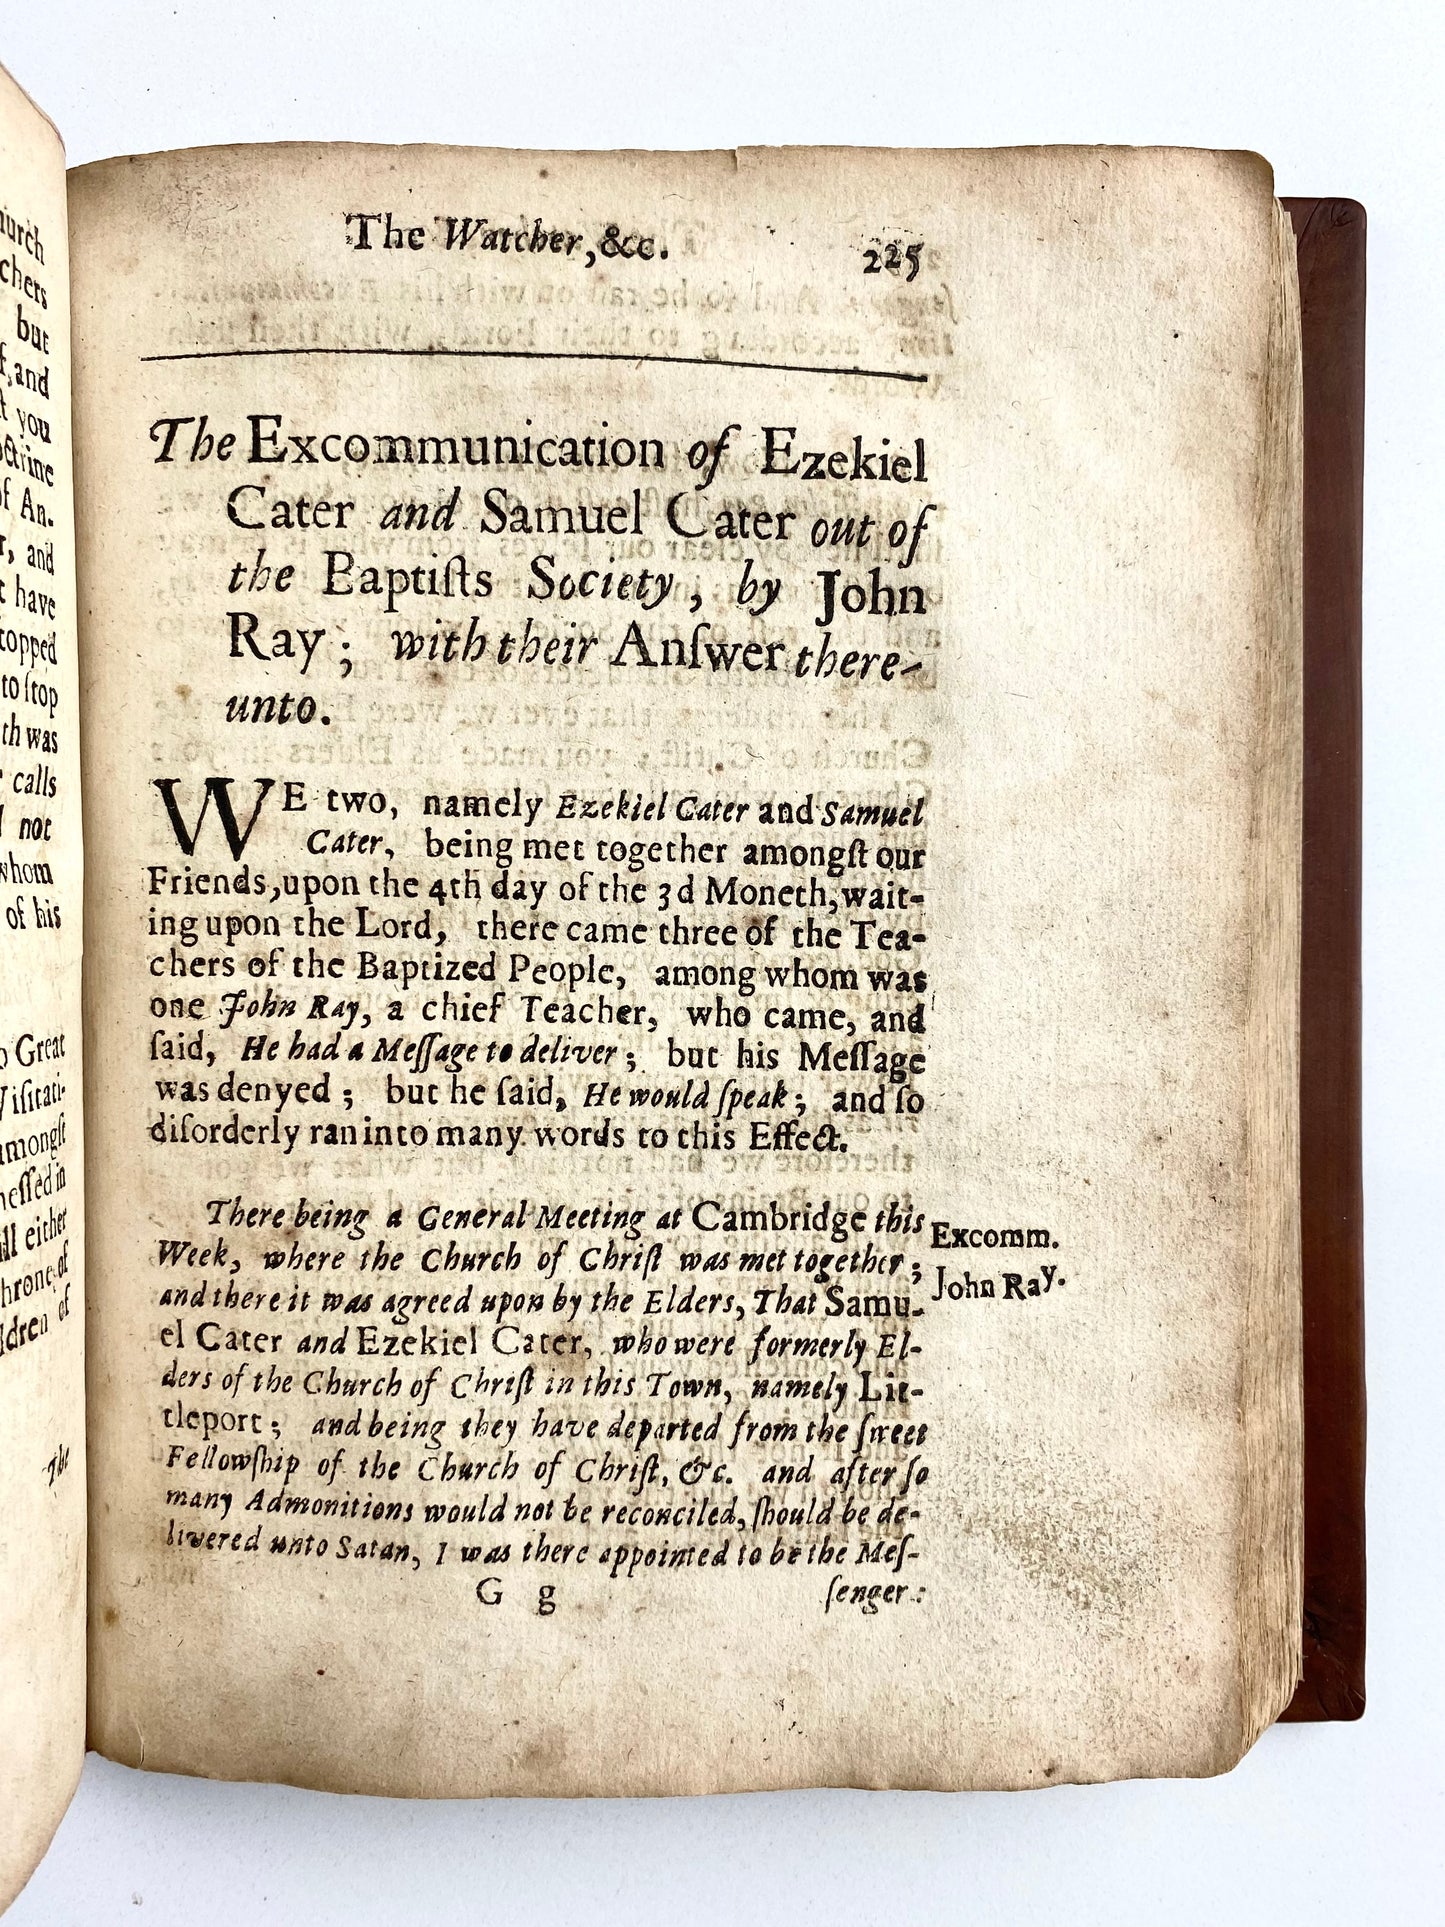 urch
chers
but
f, and
t you
octrine
of An-
r, and
t have
topped
to ſtop
th was
r calls
not
whom
of his
o Great
Viſitati-
amongſt
neſſed in
ill either
hrone, of
ldren of
The
The Watcher, &c.
225
The Excommunication of Ezekiel
Cater and Samuel Cater out of
the Baptiſts Society, by John
Ray; with their Anſwer there-
unto.
WE two, namely Ezekiel Cater and Samuel
Cater, being met together amongſt our
Friends, upon the 4th day of the 3d Moneth, wait-
ing upon the Lord, there came three of the Tea-
chers of the Baptized People, among whom was
one John Ray, a chief Teacher, who came, and
ſaid, He had a Meſſage to deliver; but his Meſſage
was denyed; but he ſaid, He would ſpeak; and ſo
diſorderly ran into many words to this Effect.
There being a General Meeting at Cambridge this
Week, where the Church of Chriſt was met together;
and there it was agreed upon by the Elders, That Samu-
el Cater and Ezekiel Cater, who were formerly El-
ders of the Church of Chriſt in this Town, namely Lit-
tleport; and being they have departed from the ſweet
Fellowſhip of the Church of Chriſt, &c. and after ſo
many Admonitions would not be reconciled, ſhould be de-
livered unto Satan, I was there appointed to be the Meſ-
G g ſenger:
Excomm.
John Ray.